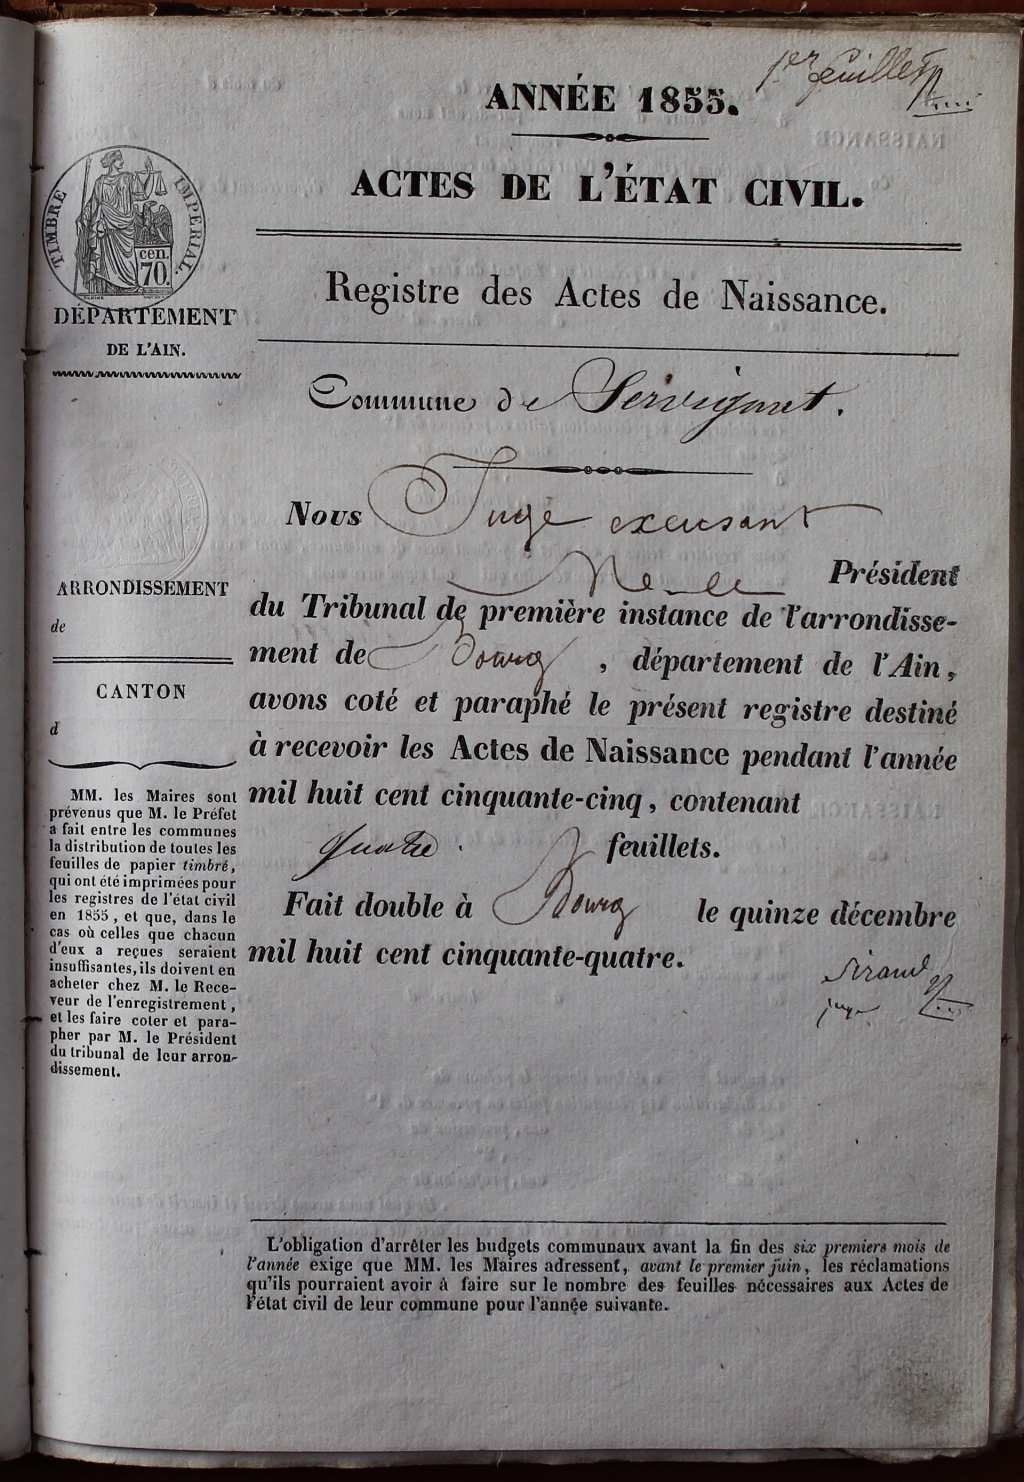 1er feuillet
ANNÉE 1855.
ACTES DE L'ÉTAT CIVIL.
TIMBRE IMPERIAL.
cen.
70.
DÉPARTEMENT
DE L'AIN.
Registre des Actes de Naissance.
Commune de Servignat.
Nous Juge excusant
M. le Président
du Tribunal de première instance de l'arrondisse-
ment de Bourg, département de l'Ain,
avons coté et paraphé le présent registre destiné
à recevoir les Actes de Naissance pendant l'année
mil huit cent cinquante-cinq, contenant
quatre feuillets.
Fait double à Bourg le quinze décembre
mil huit cent cinquante-quatre.
Sirand
juge
ARRONDISSEMENT
de
CANTON
d
MM. les Maires sont
prévenus que M. le Préfet
a fait entre les communes
la distribution de toutes les
feuilles de papier timbré,
qui ont été imprimées pour
les registres de l'état civil
en 1855, et que, dans le
cas où celles que chacun
d'eux a reçues seraient
insuffisantes, ils doivent en
acheter chez M. le Rece-
veur de l'enregistrement,
et les faire coter et para-
pher par M. le Président
du tribunal de leur arron-
dissement.
L'obligation d'arrêter les budgets communaux avant la fin des six premiers mois de
l'année exige que MM. les Maires adressent, avant le premier juin, les réclamations
qu'ils pourraient avoir à faire sur le nombre des feuilles nécessaires aux Actes de
l'état civil de leur commune pour l'année suivante.